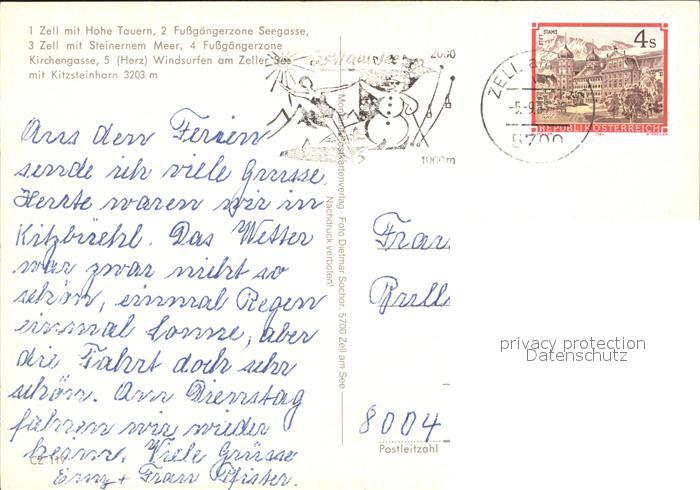 1 Zell mit Hohe Tauern, 2 Fußgängerzone Seegasse,
3 Zell mit Steinernem Meer, 4 Fußgängerzone
Kirchengasse, 5 (Herz) Windsurfen am Zeller See
mit Kitzsteinhorn 3203 m
Aus den Ferien
sende ich viele Grüsse.
Heute waren wir in
Kitzbüehl. Das Wetter
war zwar nicht so
schön, einmal Regen
einmal Sonne, aber
die Fahrt doch sehr
schön. Am Dienstag
fahren wir wieder
heim. Viele Grüsse
+ Frau Pfister.
CZ
Zell am See
2000
1000m
ZELL a
5700
STIFT STAMS
4 S
REPUBLIK ÖSTERREICH
Postkartenverlag Foto Dietmar Sochor, 5700 Zell am See
Nachdruck verboten!
Frau
8004
Postleitzahl
privacy protection
Datenschutz